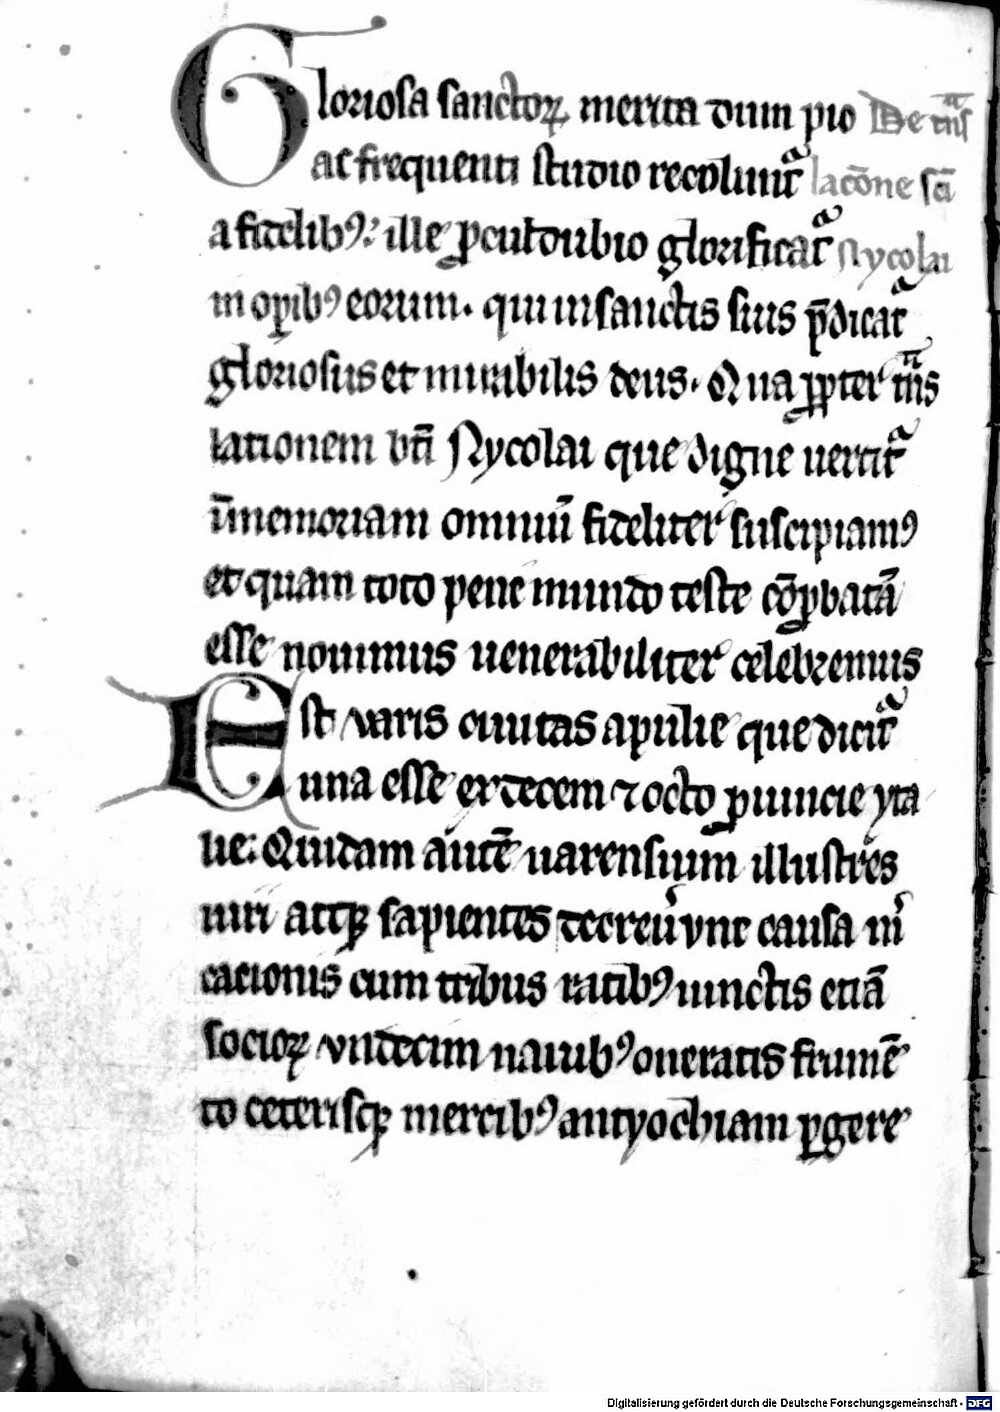 Gloriosa sanctoꝝ merita dum pio De tnͣs
ac frequenti studio recolunt᷑ lacōne scī
a fidelibꝰ: ille ꝓculdubio glorificat᷑ Nycolai
in oꝑibꝰ eorum. qui in sanctis suis p̄dicat᷑
gloriosus et mirabilis deus. Qua ꝓpter tͣns
lationem btī Nycolai que digne uertit᷑
ī memoriam omniū fideliter suscipiamꝰ
et quam toto pene mundo teste cōꝓbatā
esse nouimus uenerabiliter celebremus
Est varis ciuitas apulie que dicit᷑
una esse ex decem ⁊ octo ꝓuincie yta
lie: Quidam autē uarensium illustres
uiri atqꝫ sapientes decreuͥvnt causa mͥ
cacionis cum tribus ratibꝰ iunctis etiā
socioꝝ vndecim nauibꝰ oneratis frumē
to ceterisqꝫ mercibꝰ antyochiam ꝑgere
Digitalisierung gefördert durch die Deutsche Forschungsgemeinschaft - DFG